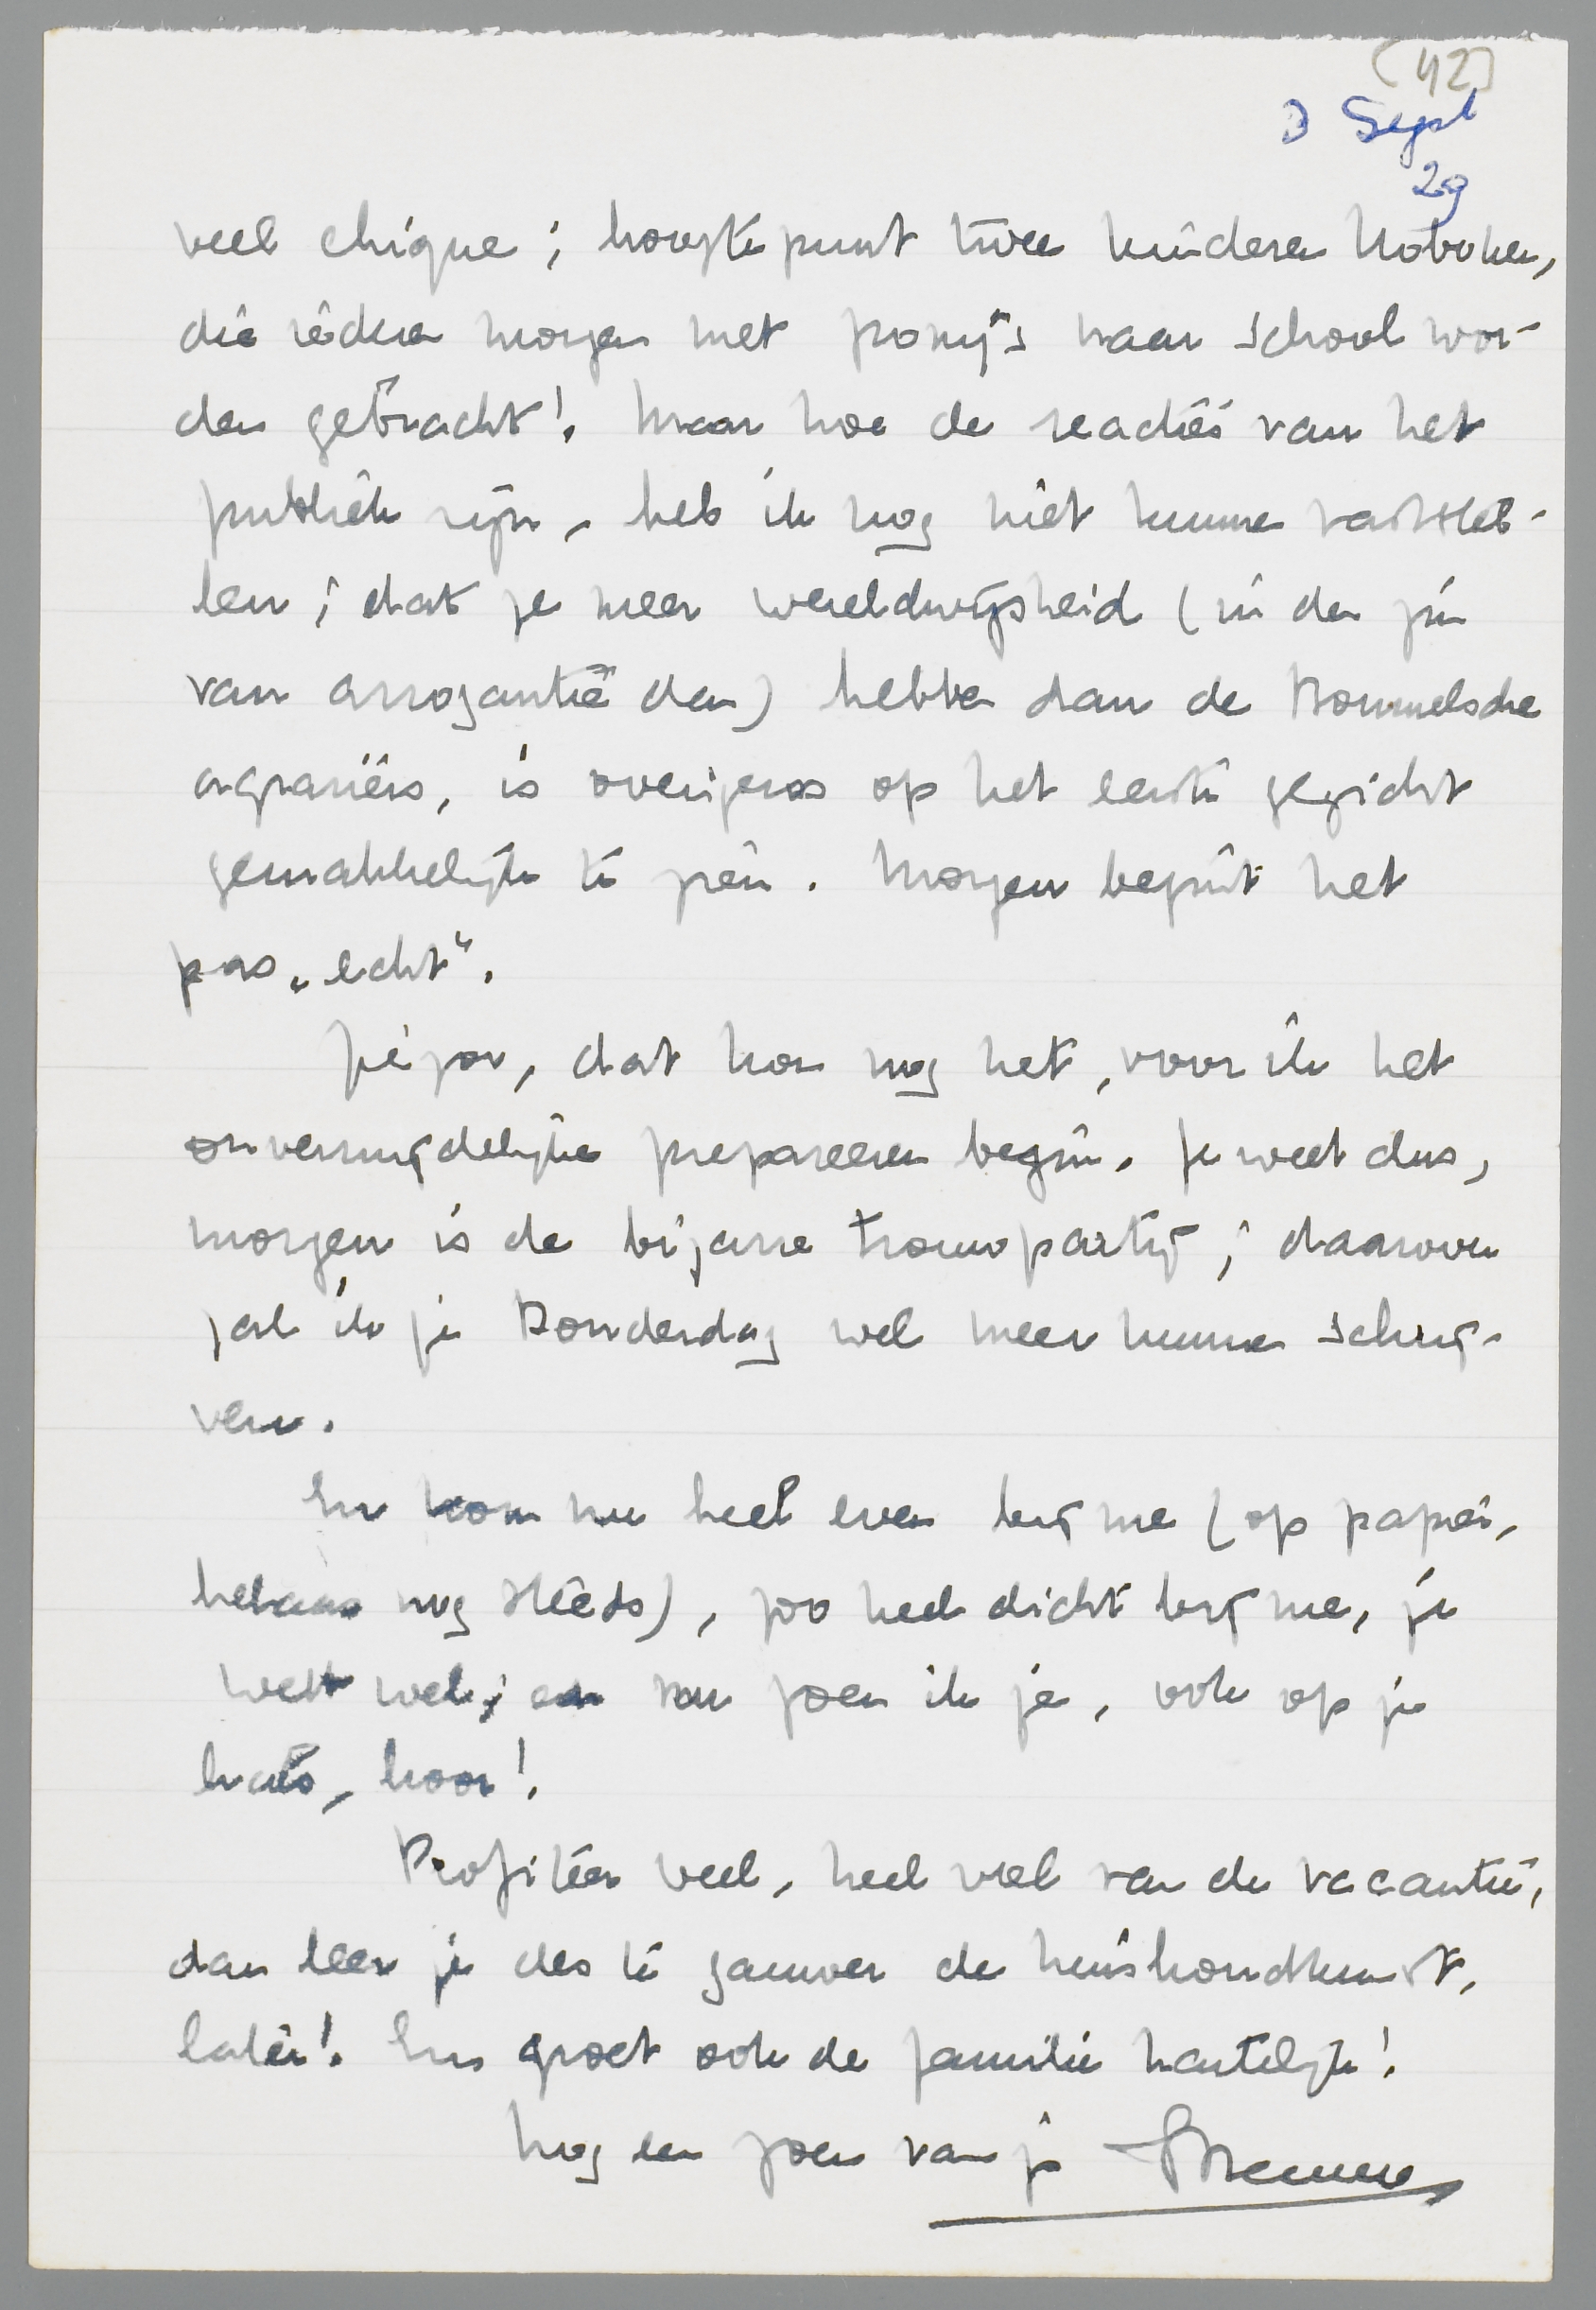 [42]
3 Sept
29
veel chique; hoogtepunt twee kinderen Hoboken,
die iedere morgen met pony's naar school wor-
den gebracht! Maar hoe de reacties van het
publiek zijn, heb ik nog niet kunnen vaststel-
len; dat ze meer wereldwijsheid (in den zin
van arrogantie dan) hebben dan de Bommelsche
agrariërs, is overigens op het eerste gezicht
gemakkelijk te zien. Morgen begint het
pas „echt".
Zie zoo, dat kon nog net, voor ik het
onvermijdelijke prepareeren begin. Je weet dus,
morgen is de bizarre trouwpartij; daarover
zal ik je Donderdag wel meer kunnen schrij-
ven.
En kom nu heel even bij me (op papier,
helaas nog steeds), zoo heel dicht bij me, je
weet wel; en nu zoen ik je, ook op je
hals, hoor!
Profiteer veel, heel veel van de vacantie,
dan leer je des te gauwer de huishoudkunst,
later! En groet ook de familie hartelijk!
Nog een zoen van je Menno